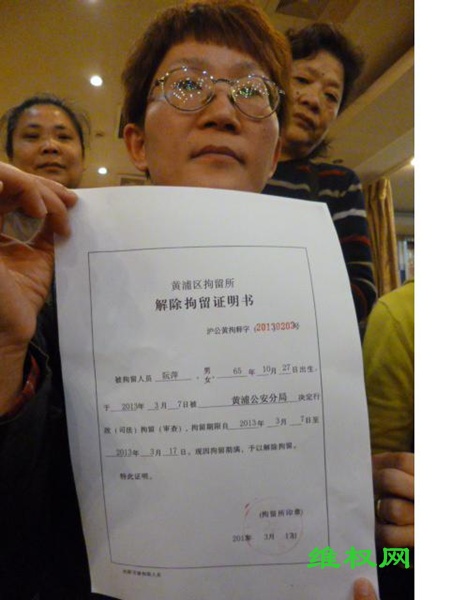 黄浦区拘留所
解除拘留证明书
沪公黄拘释字（20130203）
被拘留人员 阮萍 ，男女，65 年 10 月 27 日出生，
于 2013 年 3 月 7 日被 黄浦公安分局 决定行
政（司法）拘留（审查），拘留期限自 2013 年 3 月 7 日至
2013 年 3 月 17 日，现因拘留期满，予以解除拘留。
特此证明。
（拘留所印章）
2013年 3月 17日
维权网